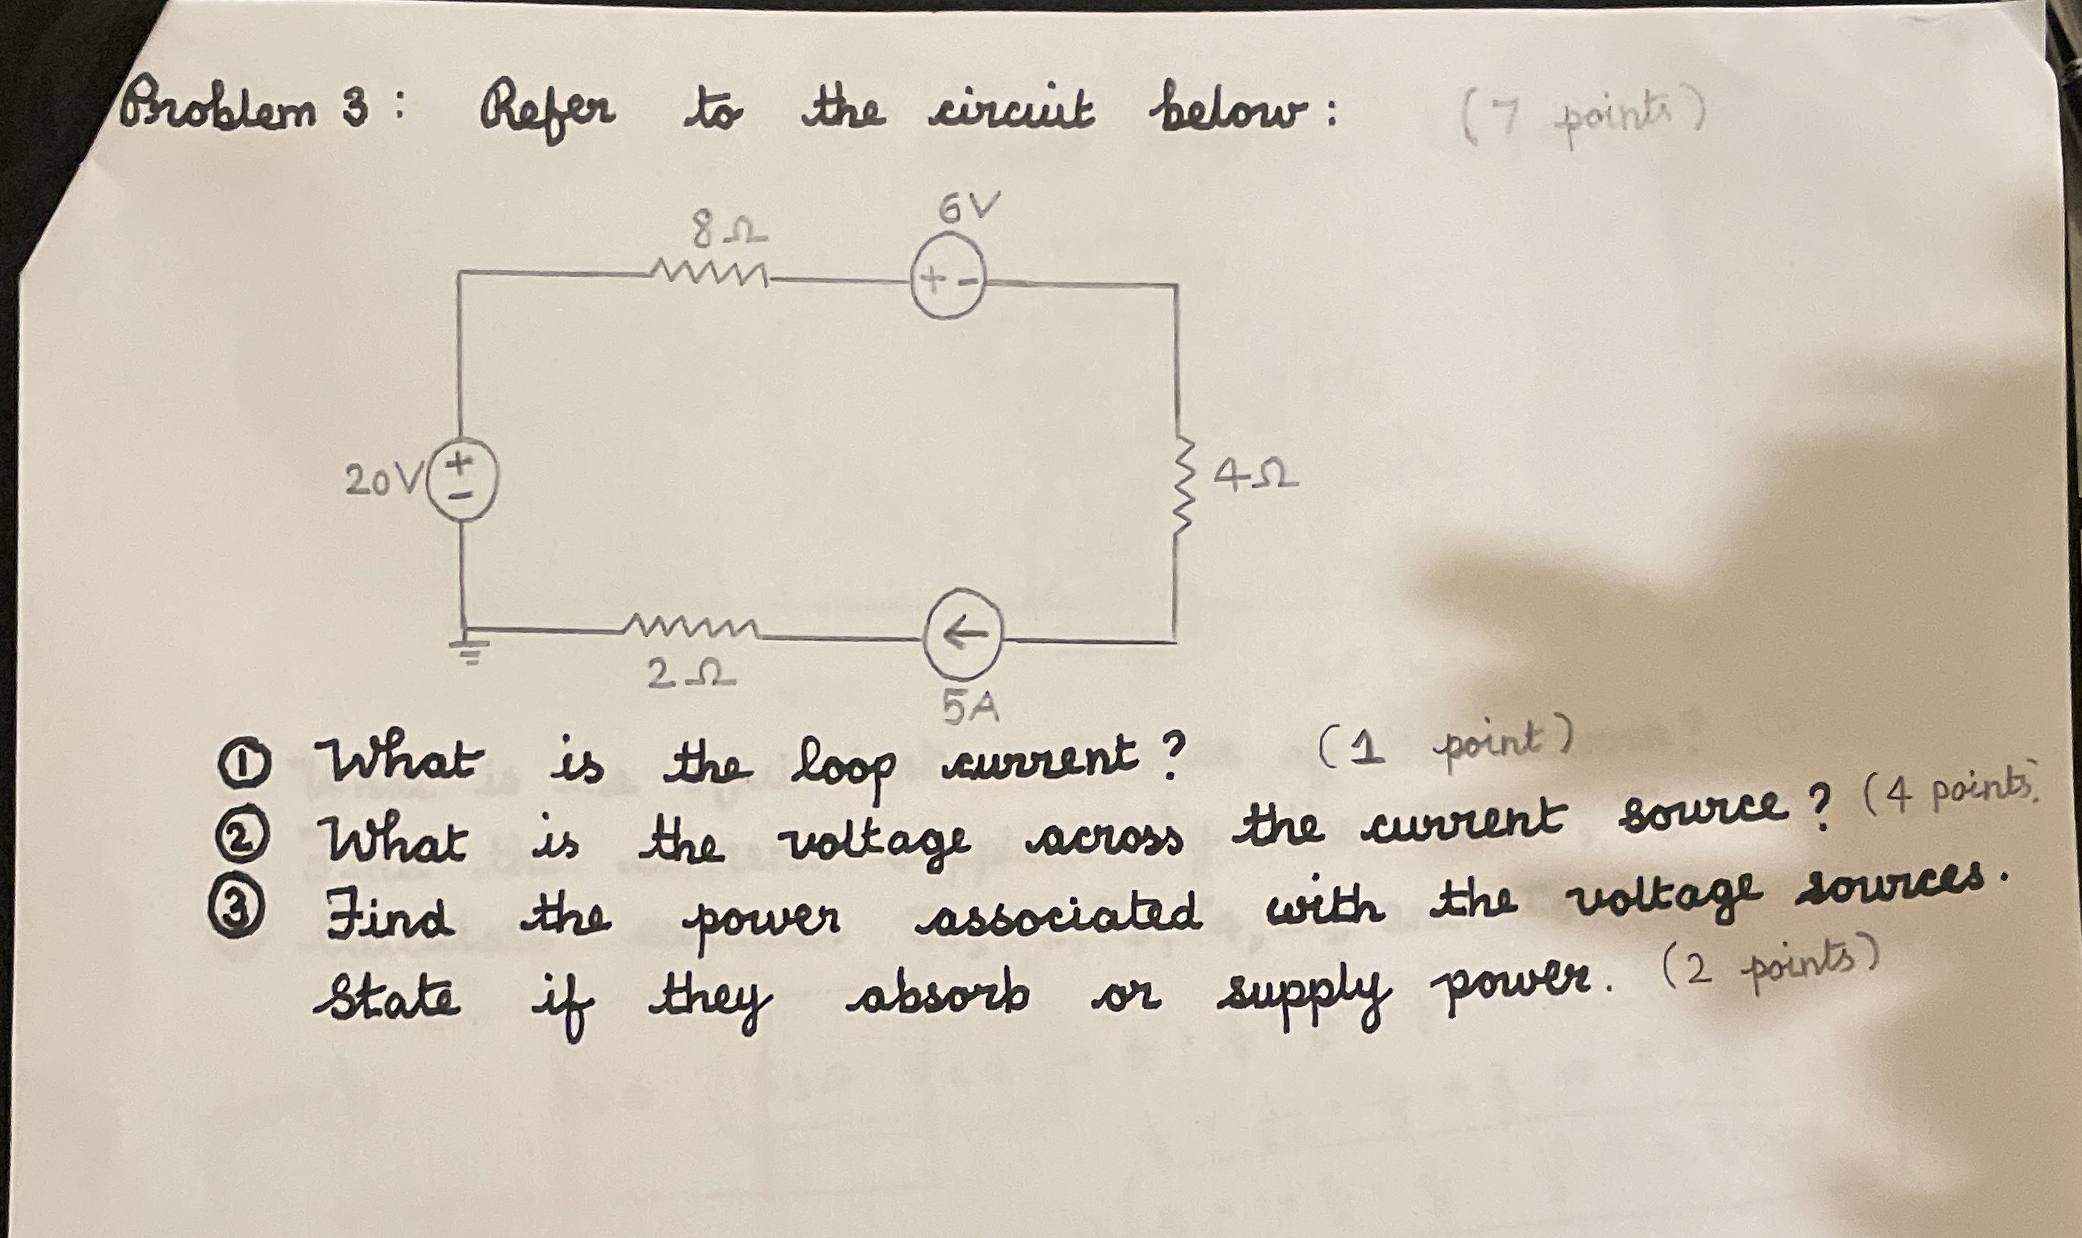 Problem 3: Refer to the circuit below: (7 points)
8Ω
6V
+ -
20V
+
-
4Ω
2Ω
5A
① What is the loop current? (1 point)
② What is the voltage across the current source? (4 points)
③ Find the power associated with the voltage sources.
State if they absorb or supply power. (2 points)